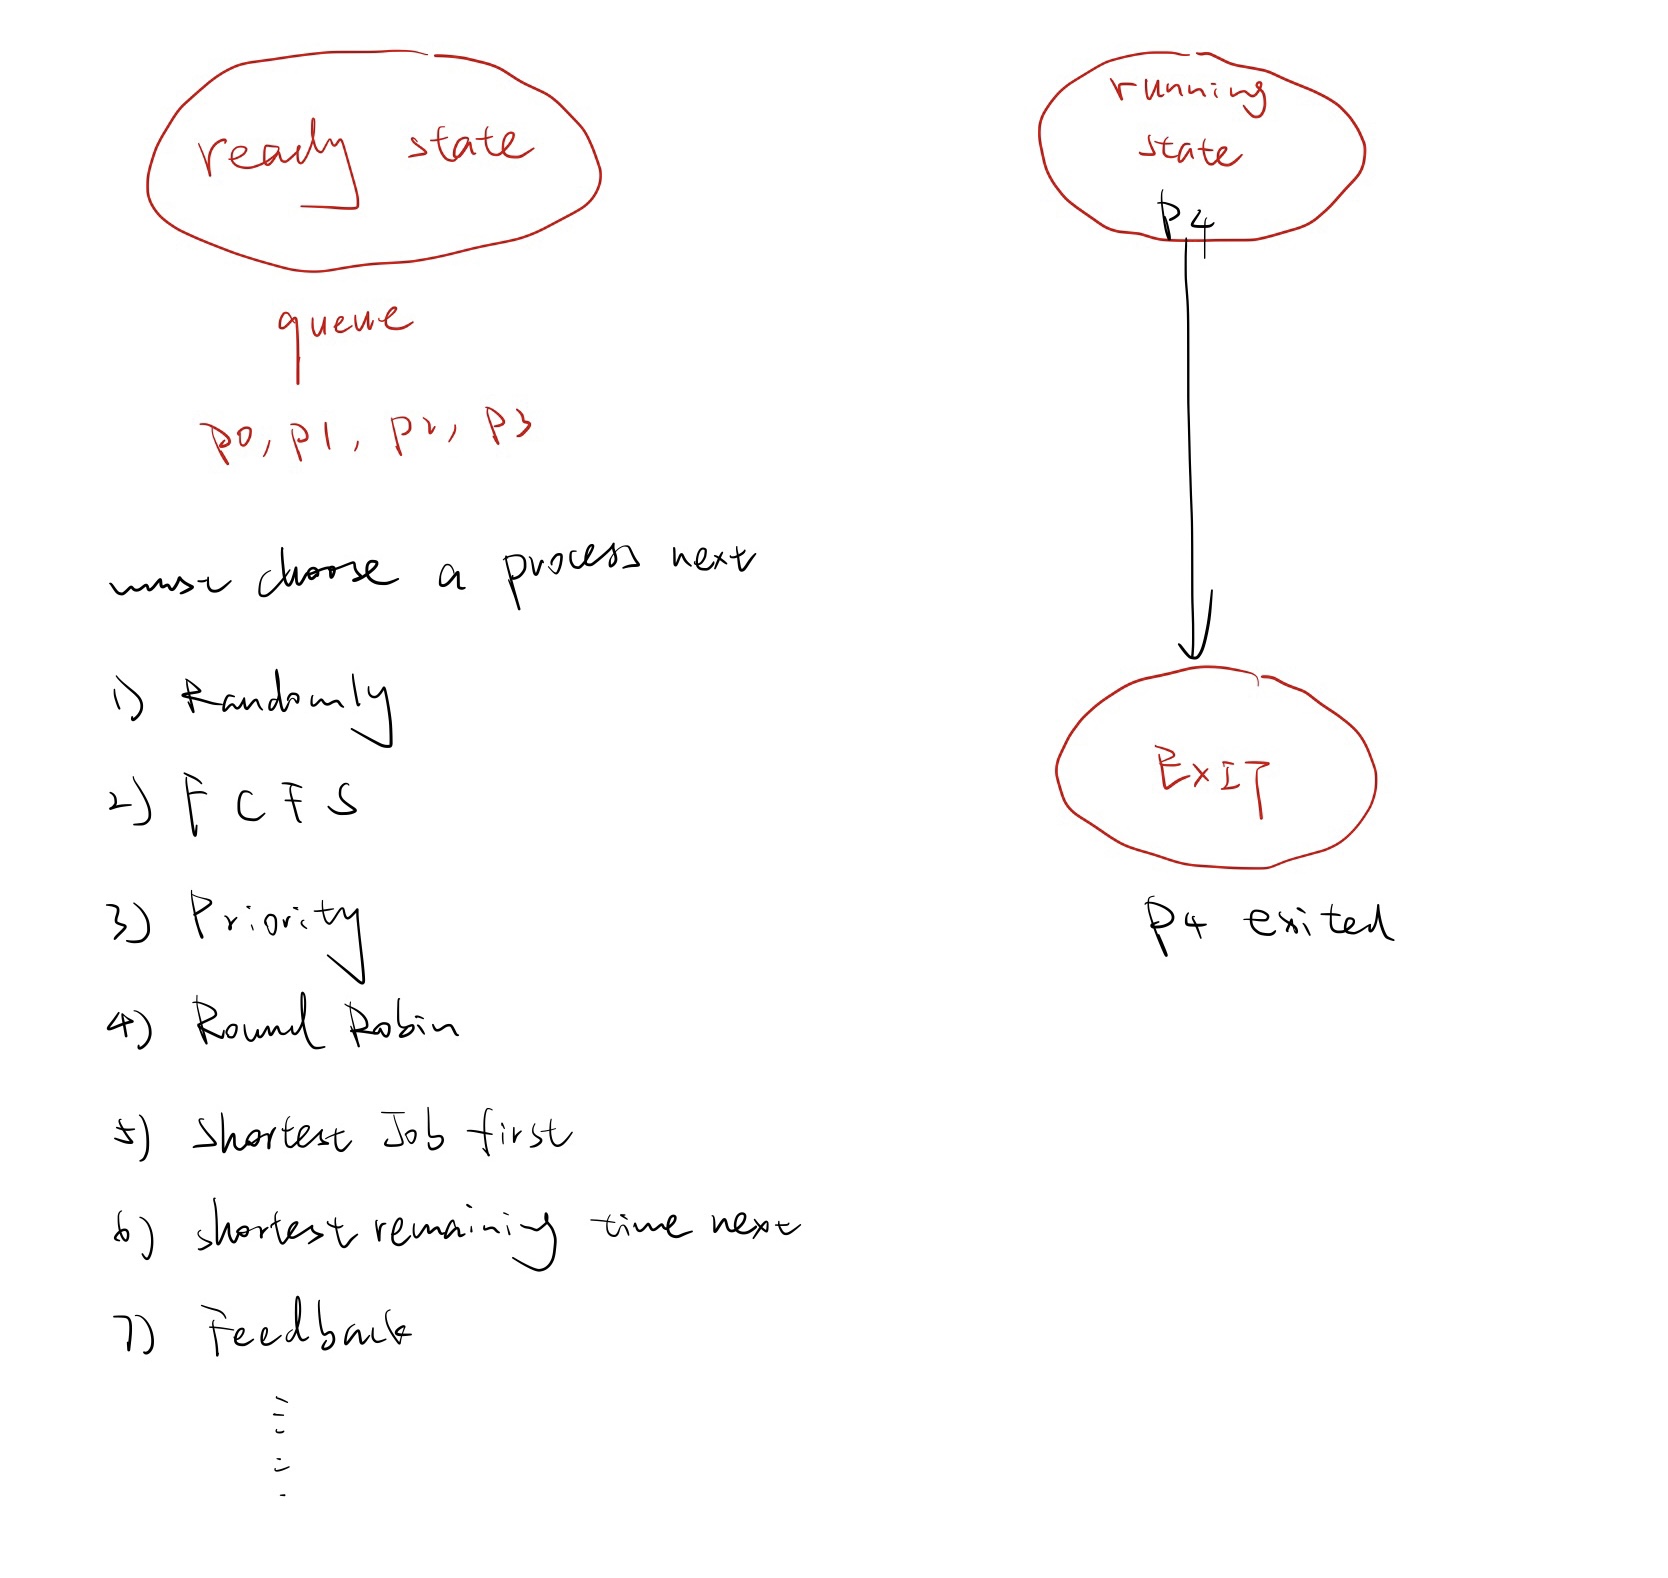 ready state
queue
P0, P1, P2, P3
must choose a process next
1) Randomly
2) F C F S
3) Priority
4) Round Robin
5) Shortest Job first
6) shortest remaining time next
7) Feedback
running
state
P4
EXIT
P4 exited